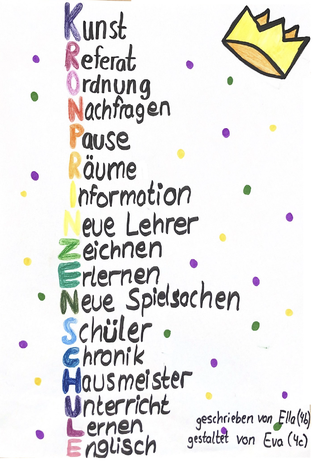 Kunst
Referat
Ordnung
Nachfragen
Pause
Räume
Information
Neue Lehrer
Zeichnen
Erlernen
Neue Spielsachen
Schüler
Chronik
Hausmeister
Unterricht
Lernen
Englisch
geschrieben von Ella (4b)
gestaltet von Eva (4c)